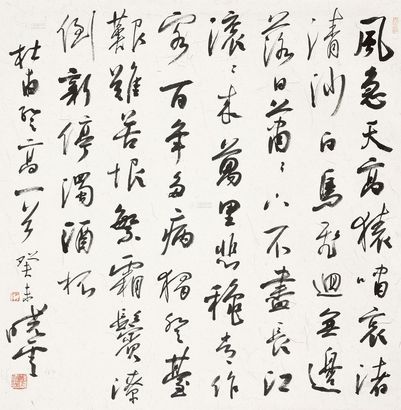 風急天高猿嘯哀渚
清沙白鳥飛迴無邊
落日蕭〻下不盡長江
滾〻來萬里悲穐常作
客百年多病獨登臺
艱難苦恨繁霜鬢潦
倒新停濁酒杯
杜甫登高一首 癸未 曉雲